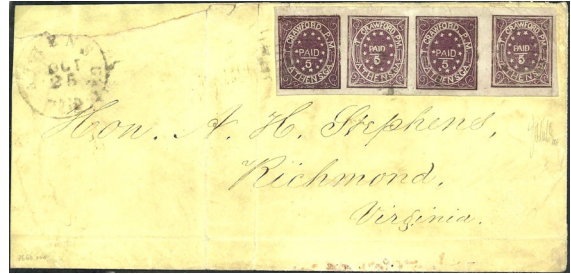 ATHENS GA.
OCT
25
PAID
T. CRAWFORD, P.M.
PAID
5
ATHENS, GA.
T. CRAWFORD, P.M.
PAID
5
ATHENS, GA.
T. CRAWFORD, P.M.
PAID
5
ATHENS, GA.
T. CRAWFORD, P.M.
PAID
5
ATHENS, GA.
Hon. A. H. Stephens,
Richmond,
Virginia.